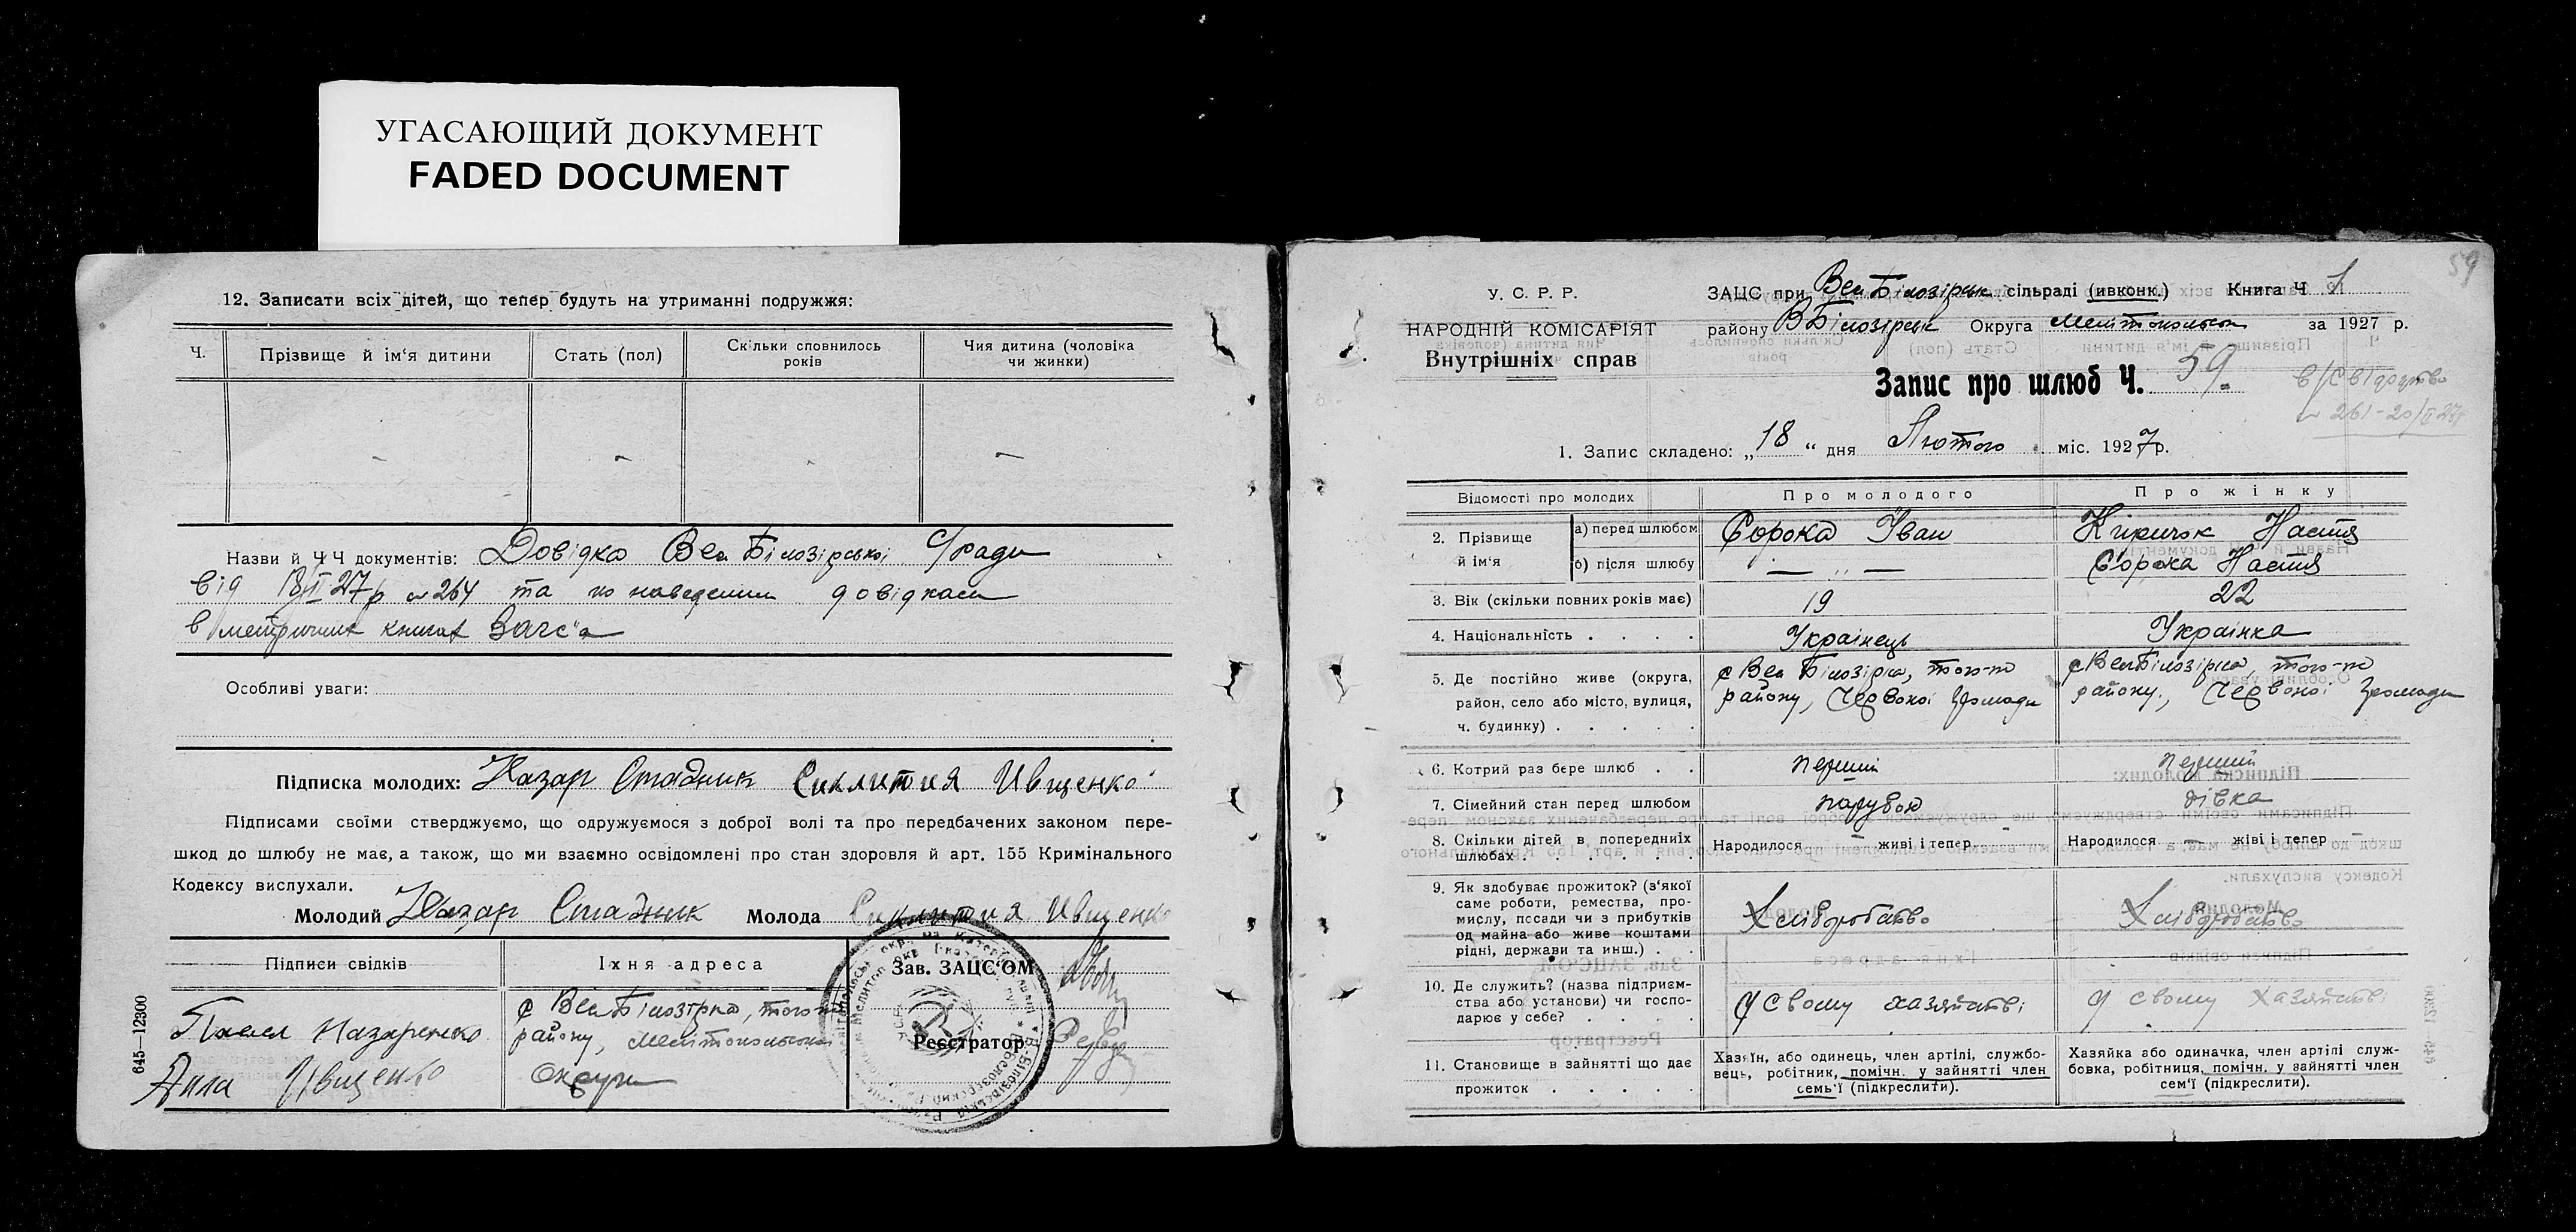 УГАСАЮЩИЙ ДОКУМЕНТ
FADED DOCUMENT
12. Записати всіх дітей, що тепер будуть на утриманні подружжя:
Ч.
Прізвище й ім‘я дитини
Стать (пол)
Скільки сповнилось років
Чия дитина (чоловіка чи жинки)
Назви й Ч Ч документів: Довідка Вел Білозірської С/ради
від 18/II 27р № 264 та по наведеним довідкам
в метричних книгах Загс'а
Особливі уваги:
Підписка молодих: Назар Стадник Сиклития Ивщенко
Підписами своїми стверджуємо, що одружуємося з доброї волі та про передбачених законом пере-
шкод до шлюбу не має, а також, що ми взаємно освідомлені про стан здоровля й арт. 155 Кримінального
Кодексу вислухали.
Молодий Назар Стадник Молода Сиклития Ивщенко
Підписи свідків
Їхня адреса
Зав. ЗАЦС'ОМ
Павел Назаренко
с Вел Білозірка, того-ж
району, Мелітопольської
Реєстратор
Ивщенко
Округи
645—12300
59
У. С. Р. Р.
ЗАЦС при Вел Білозірськ. сільраді (ивконк.) Книга Ч 1
НАРОДНІЙ КОМІСАРІЯТ
району В Білозірськ Округа Мелітопольськ за 1927 р.
Внутрішніх справ
Запис про шлюб Ч. 59.
в/Свідоцтво
№ 261-20/II 27р
1. Запис складено: „18“ дня Лютого міс. 1927р.
Відомості про молодих
Про молодого
Про жінку
2. Прізвище й ім‘я
а) перед шлюбом
Сорока Іван
Киричок Настя
б) після шлюбу
— „ —
Сорока Настя
3. Вік (скільки повних років має)
19
22
4. Національність . . . .
Українець
Українка
5. Де постійно живе (округа, район, село або місто, вулиця, ч. будинку) . . . .
с Вел Білозірка, того-ж
району, Червоної громади
с Вел Білозірка, того-ж
району, Червоної громади
6. Котрий раз бере шлюб . .
перший
перший
7. Сімейний стан перед шлюбом
парубок
дівка
8. Скільки дітей в попередніх шлюбах . . . . .
Народилося живі і тепер
Народилося — жіві і тепер —
9. Як здобуває прожиток? (з‘якої саме роботи, ремества, промислу, пссади чи з прибутків од майна або живе коштами рідні, держави та инш.) . .
Хліборобство
Хліборобство
10. Де служить? (назва підприємства або установи) чи господарює у себе? . . . .
У свому хазяйстві
У свому хазяйстві
11. Становище в зайнятті що дає прожиток . . . .
Хазяїн, або одинець, член артілі, службовець, робітник, помічн. у зайнятті член семь‘ї (підкреслити).
Хазяйка або одиначка, член артілі службовка, робітниця, помічн. у зайнятті член сем‘ї (підкреслити).